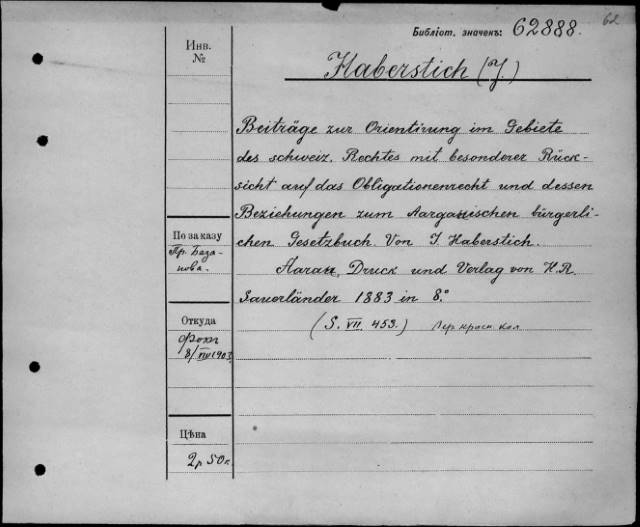 62
Библіот. значекъ: 62888.
Инв.
№
Haberstich (J.)
Beiträge zur Orientirung im Gebiete
des schweiz. Rechtes mit besonderer Rück-
sicht auf das Obligationenrecht und dessen
Beziehungen zum Aargauischen bürgerli-
chen Gesetzbuch. Von J. Haberstich.
Aarau, Druck und Verlag von H. R.
Sauerländer 1883 in 8.°
(S. VII. 453.)
По заказу
Пр. База-
нова.
Откуда
Фохъ
8/ 1903
Цѣна
2р 50к.